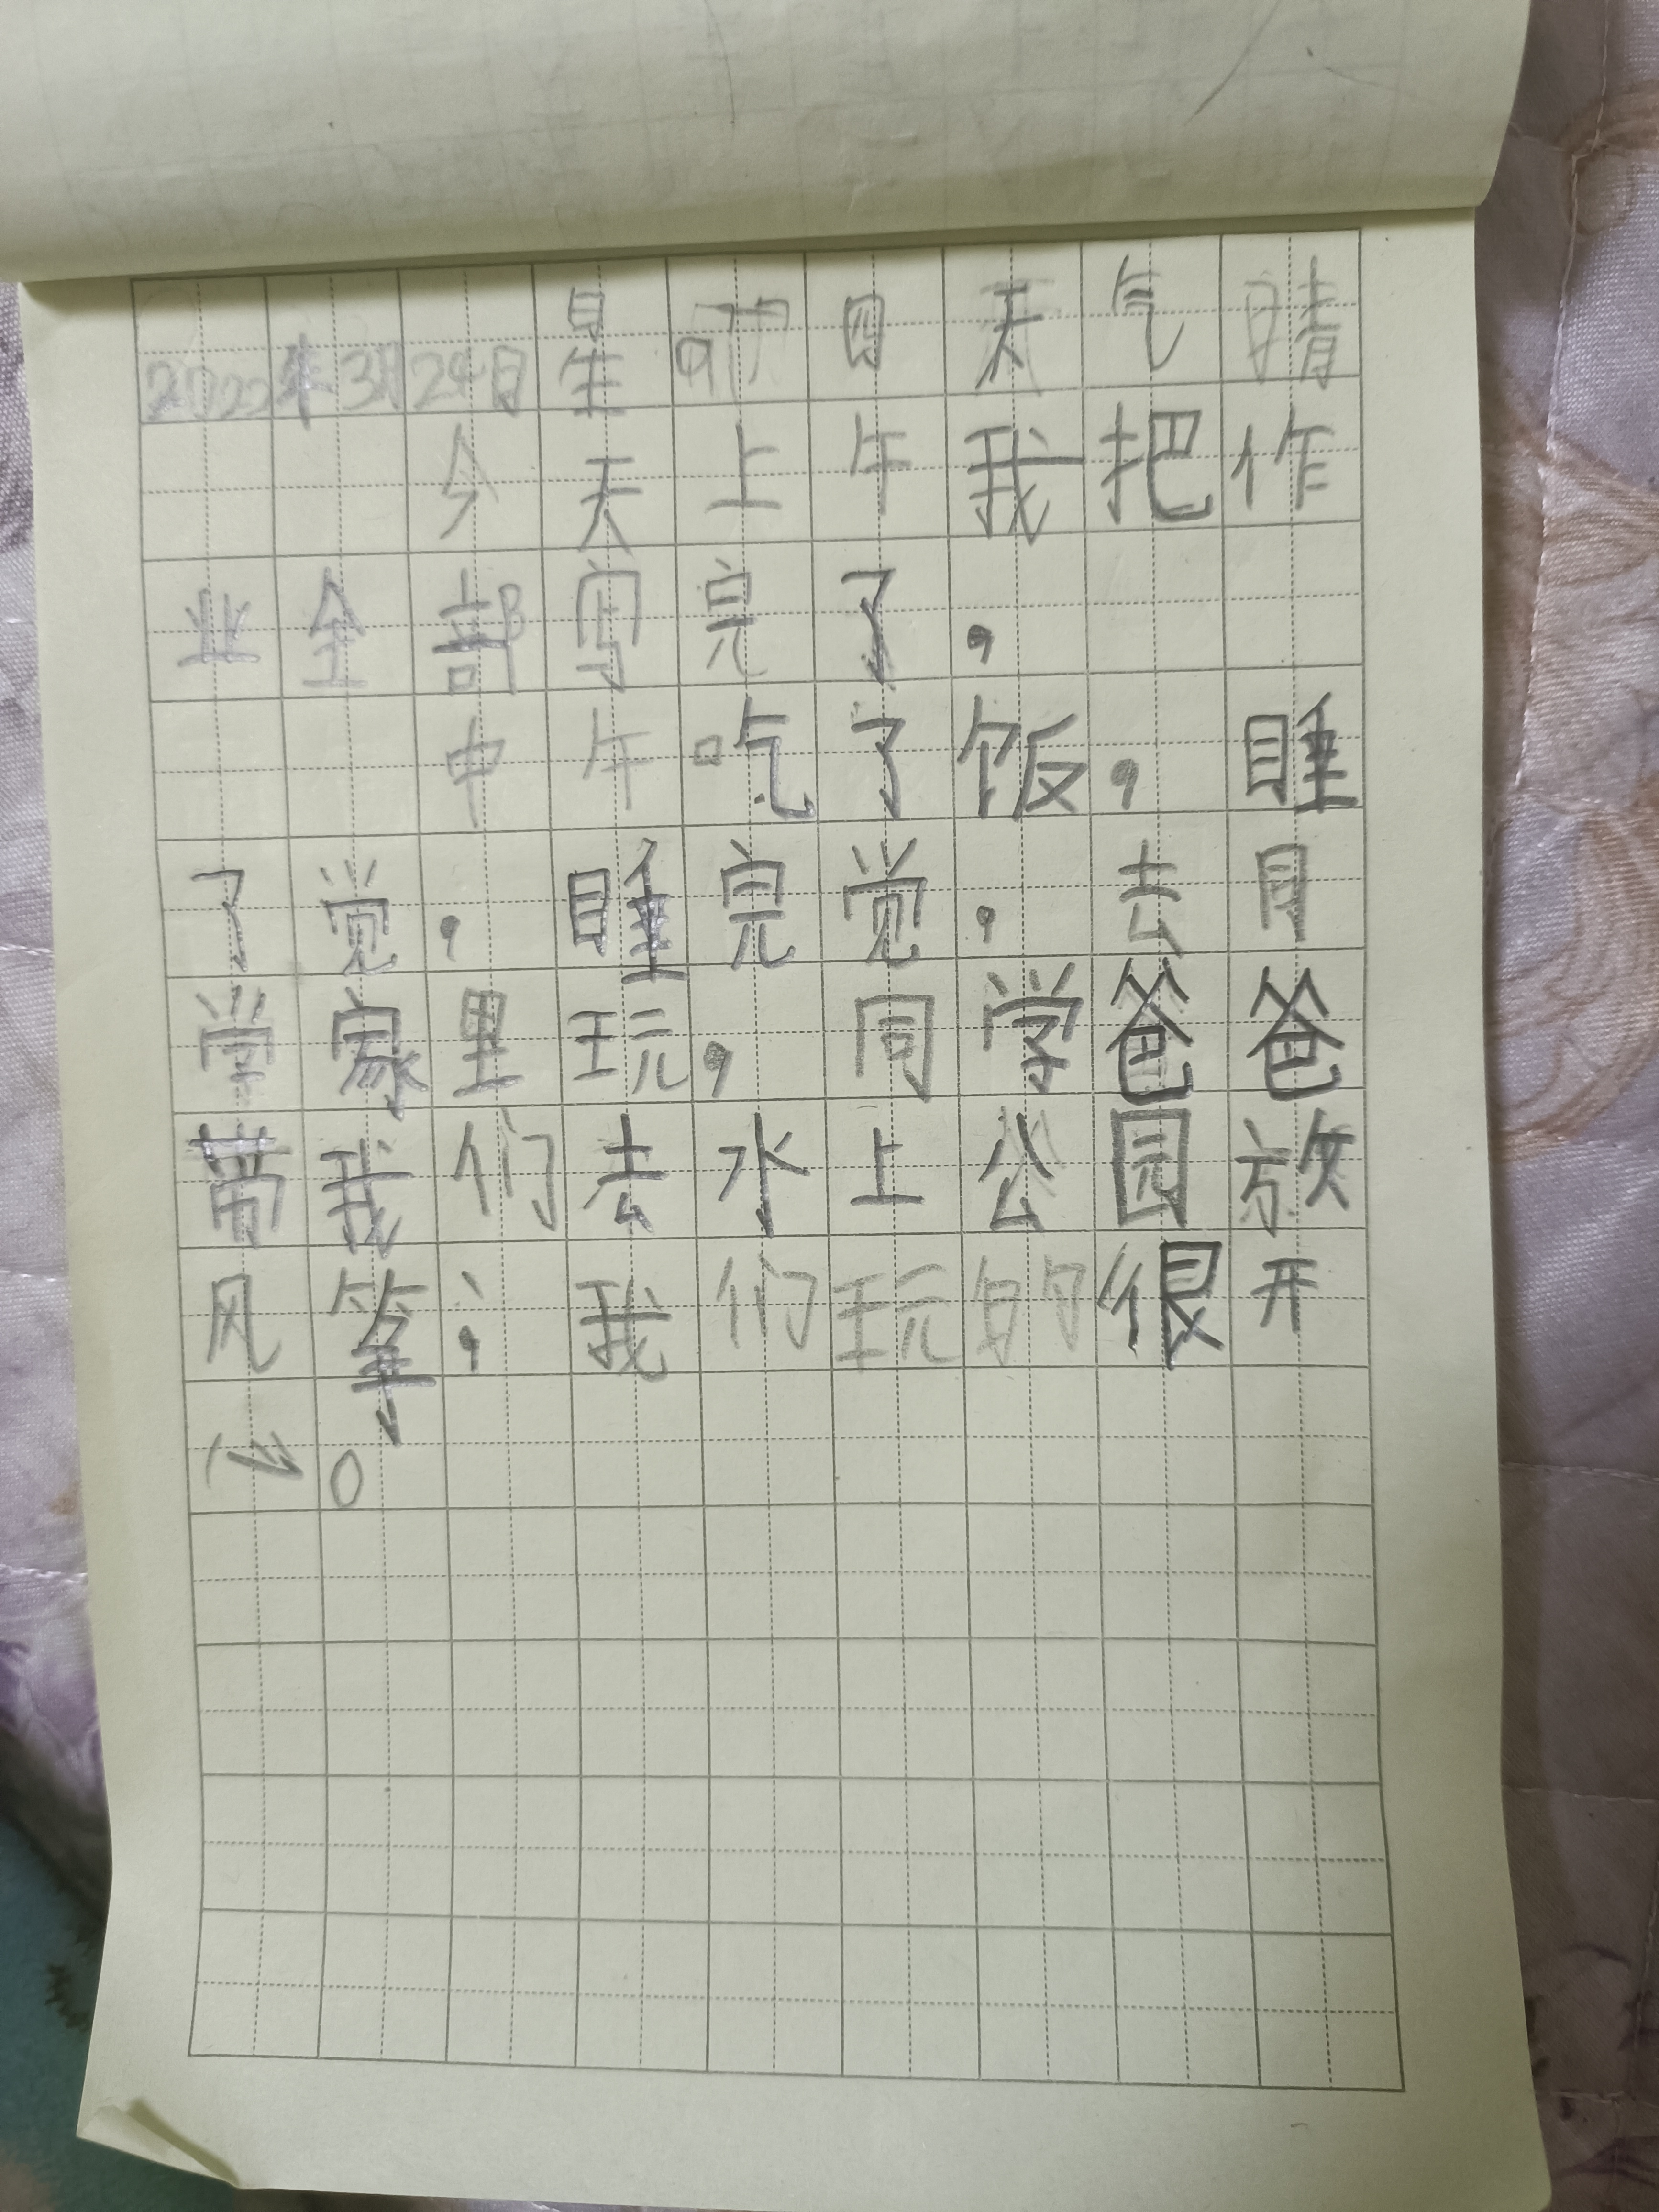 2022年3月24日星期四天气晴
今天上午我把作
业全部写完了,
中午吃了饭,睡
了觉,睡完觉,去同
学家里玩,同学爸爸
带我们去水上公园放
风筝;我们玩的很开
心。